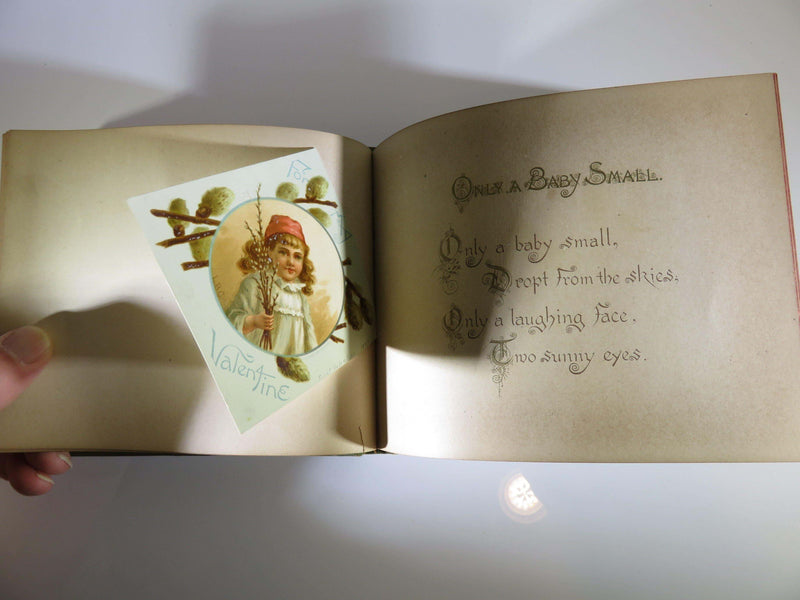 For
My
Valentine
Only a Baby Small.
Only a baby small,
Dropt from the skies;
Only a laughing face,
Two sunny eyes.